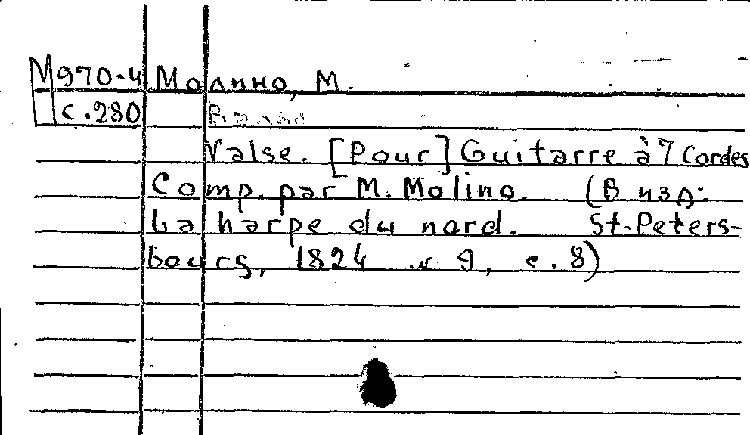 М970-4 Молино, М.
с.280
Valse. [Pour] Guitarre à 7 Cordes
Comp. par M. Molino. (В изд:
La harpe du nord. St-Peters-
bourg, 1824 № 9, с. 8)